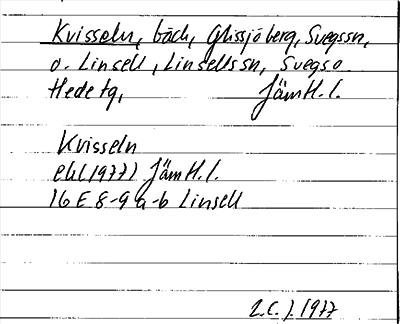 Kvisseln, bäck, Glissjöberg, Svegssn,
o. Linsell, Linsellssn, Svegs o.
Hede tg, Jämtl. l.
Kvisseln
ekl(1977) Jämtl. l.
16 E 8-9 a-b Linsell
1977